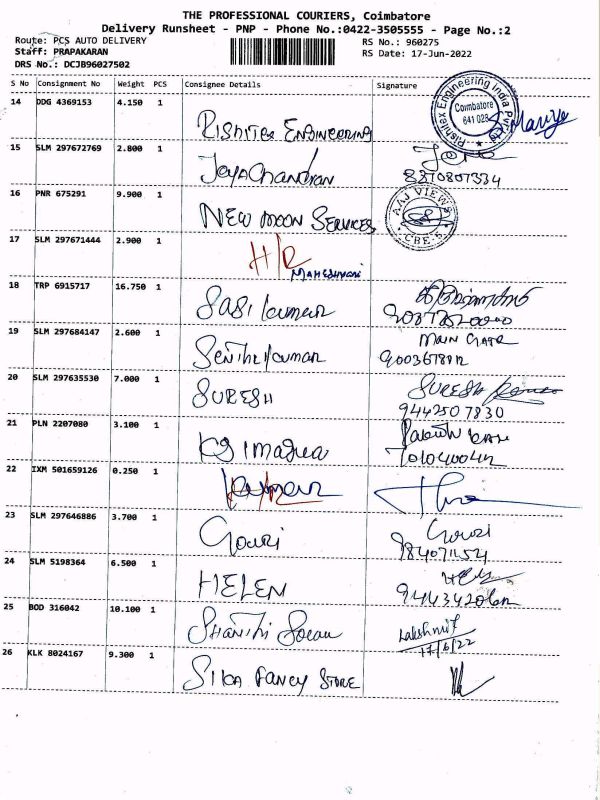 THE PROFESSIONAL COURIERS, Coimbatore
Delivery Runsheet - PNP - Phone No.:0422-3505555 - Page No.:2
Route: PCS AUTO DELIVERY
Staff: PRAPAKARAN
DRS No.: DCJB96027502
RS No.: 960275
RS Date: 17-Jun-2022
S No Consignment No Weight PCS Consignee Details Signature
14 DDG 4369153 4.150 1 RISHITEX ENGINEERING
Rishitex Engineering India Pvt
Coimbatore
641 028
15 SLM 297672769 2.800 1 JeyaChandran
8870807334
16 PNR 675291 9.900 1 NEW MOON SERVICES
AAJ VIEWS
CBE-5
17 SLM 297671444 2.900 1 H/R
MAHESHWARI
18 TRP 6915717 16.750 1 SASIkumar
19 SLM 297684147 2.600 1 Senthilkumar
MAIN GATE
20 SLM 297635530 7.000 1 SURESH SURESH
9442507830
21 PLN 2207080 3.100 1
22 IXM 501659126 0.250 1 Kumar
23 SLM 297646886 3.700 1 Gouri Gowri
24 SLM 5198364 6.500 1 HELEN
25 BOD 316042 10.100 1 SHANTHI
Lakshmi
17/6/22
26 KLK 8024167 9.300 1 SIBA FANCY STORE